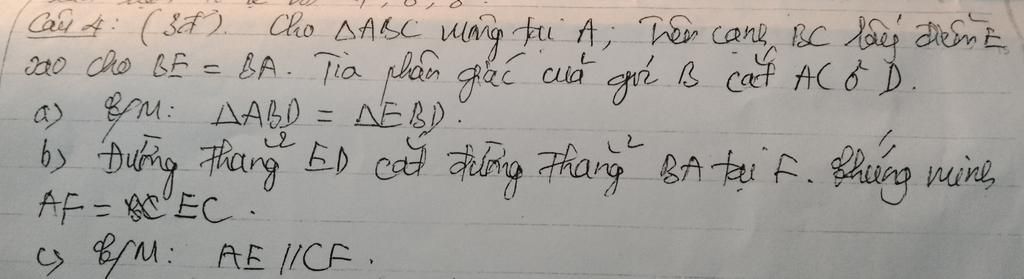 Câu 4: (3đ). Cho △ABC vuông tại A; Trên cạnh BC lấy điểm E
sao cho BE = BA. Tia phân giác của góc B cắt AC ở D.
a) C/M: △ABD = △EBD.
b) Đường thẳng ED cắt đường thẳng BA tại F. Chứng minh
AF = EC.
c) C/M: AE // CF.